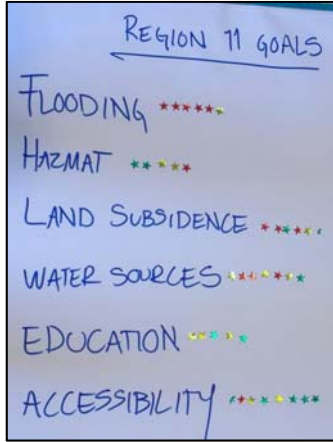 REGION 11 GOALS
FLOODING
HAZMAT
LAND SUBSIDENCE
WATER SOURCES
EDUCATION
ACCESSIBILITY